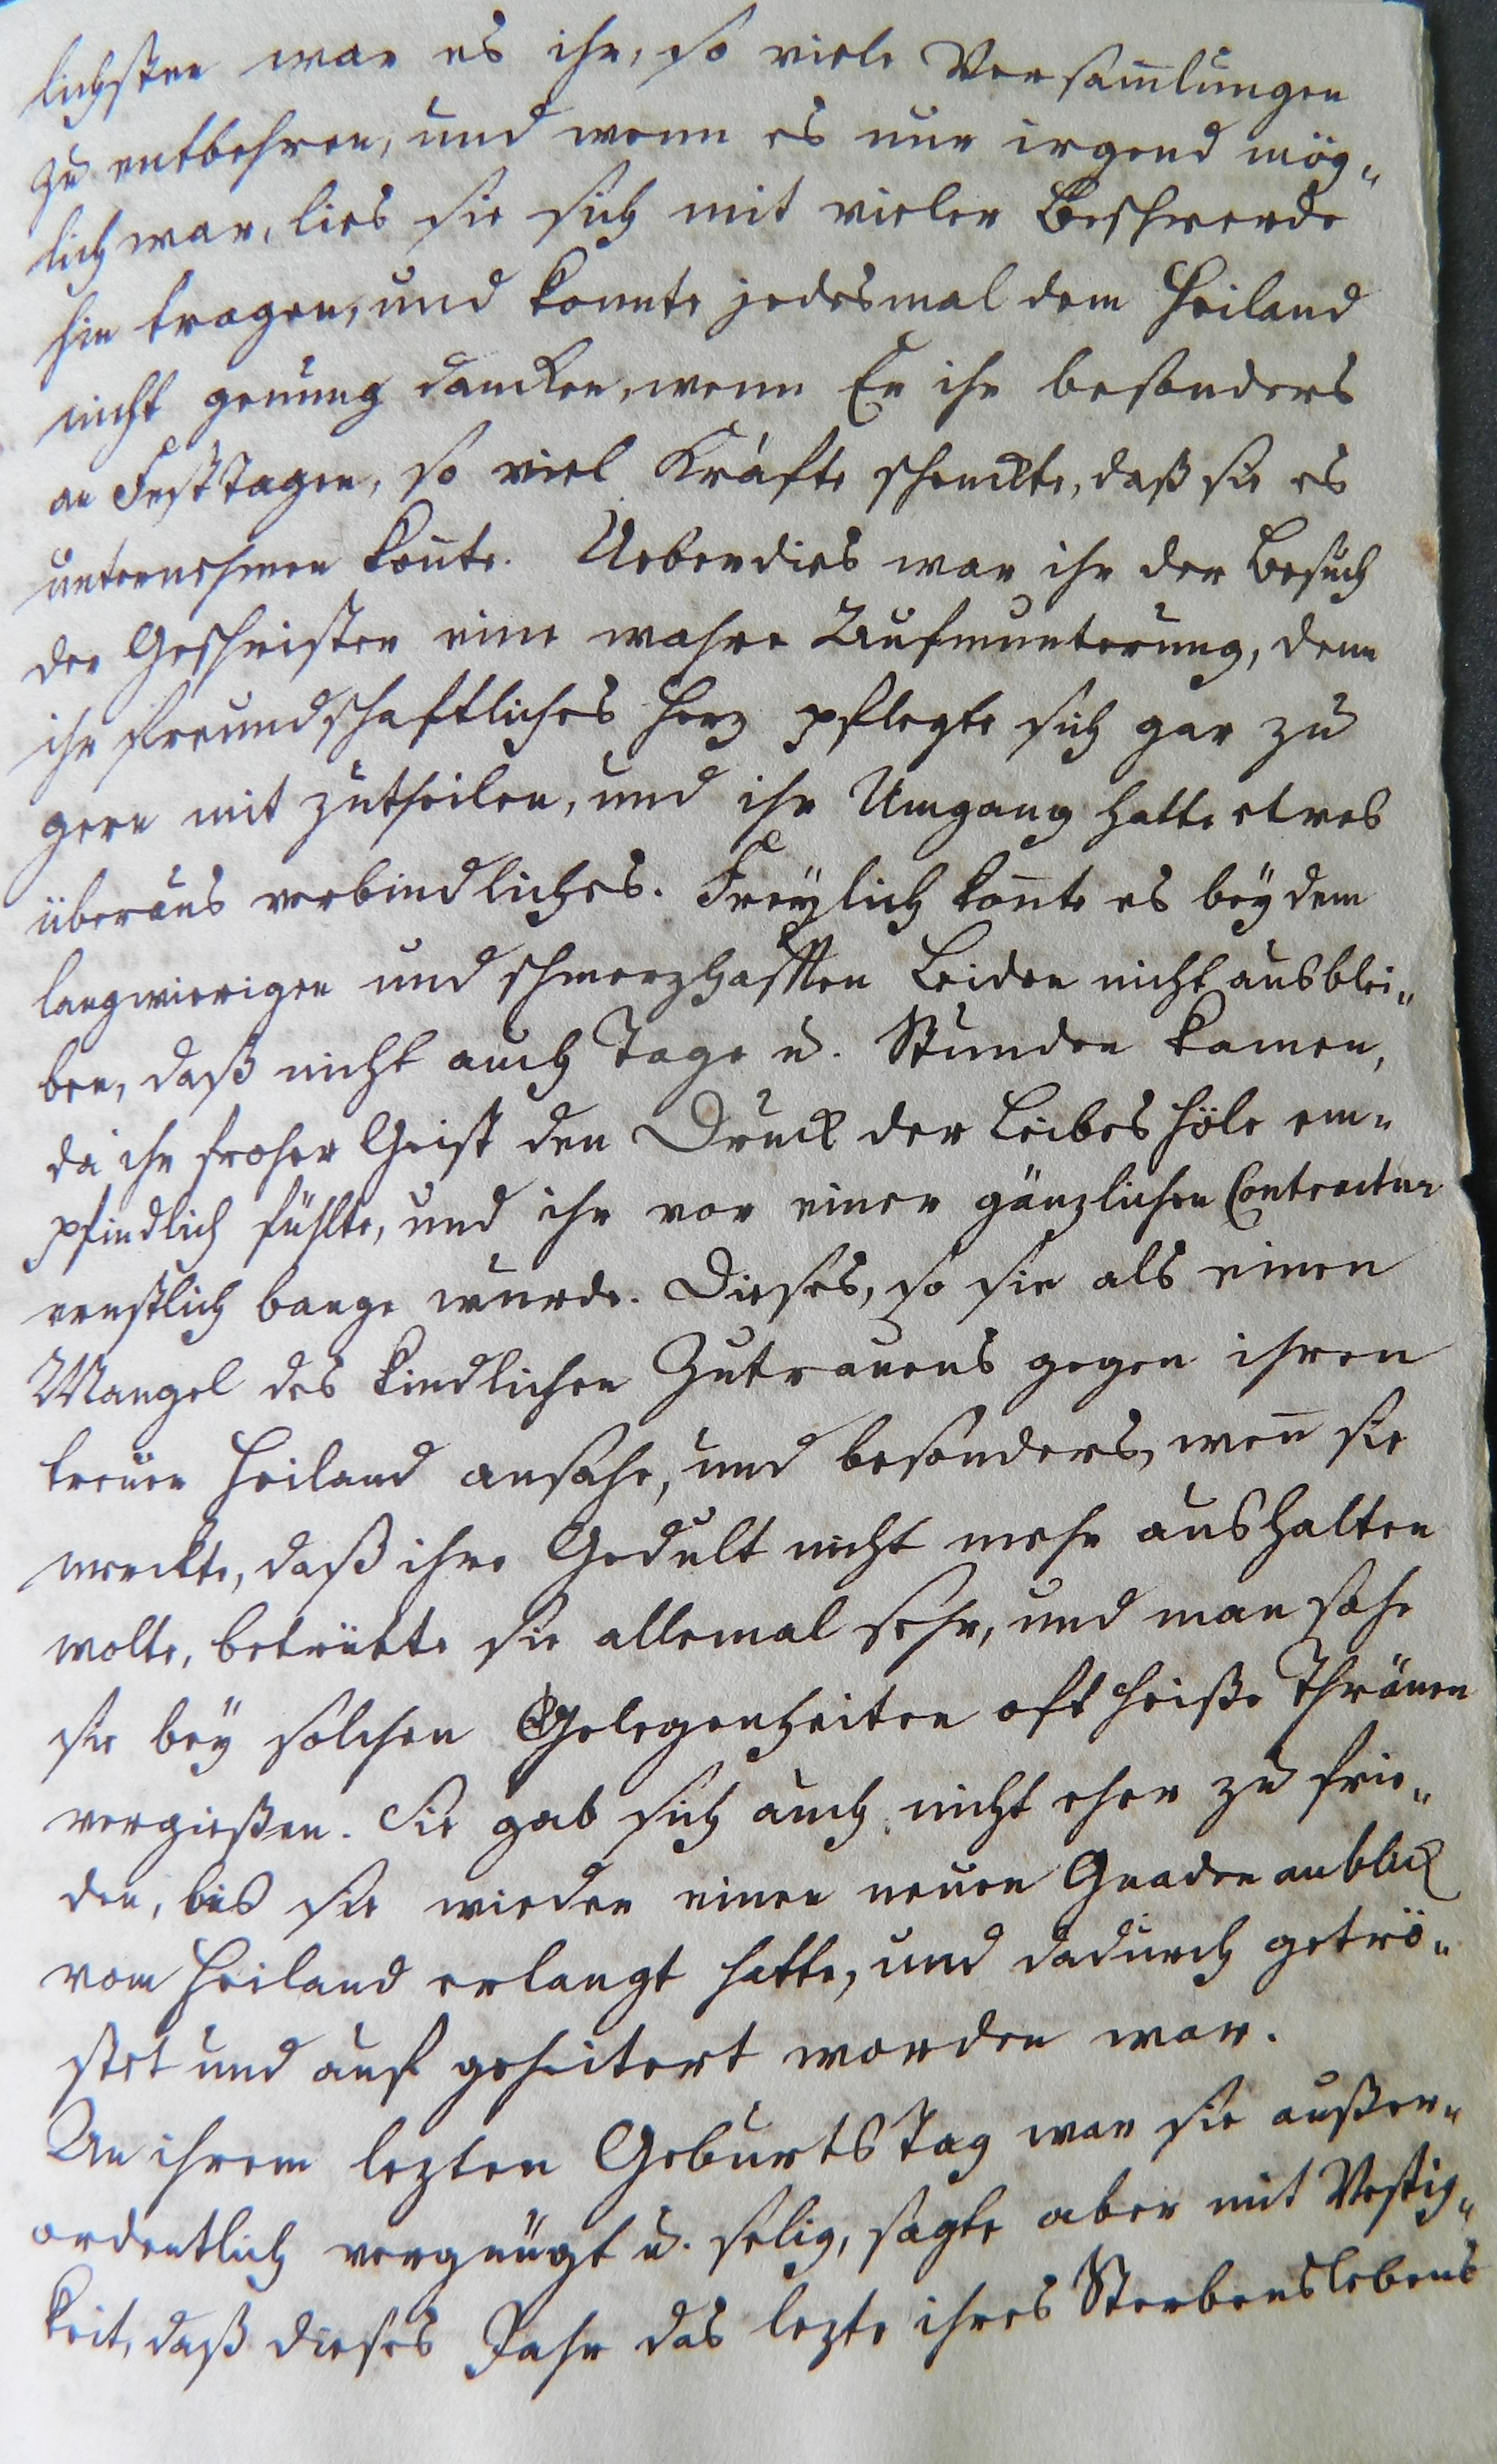 lichsten war es ihr, so viele Versam̅lungen
zu entbehren, und wenn es nur irgend mög„
lich war, lies sie sich mit vieler Beschwerde
hin tragen, und konnte jedesmal dem Heiland
nicht genung dancken, wenn Er ihr besonders
an Festtagen, so viel Kräfte schenckte, daß sie es
unternehmen kon̅te. Ueberdies war ihr der Besuch
der Geschwister eine wahre Aufmunterung, denn
ihr freundschaftliches Herz pflegte sich gar zu
gern mit zutheilen, und ihr Umgang hatte etwas
überaus verbindliches. Freÿlich kon̅te es beÿ dem
langwierigen und schmerzhafften Leiden nicht ausblei„
ben, daß nicht auch Tage u. Stunden kamen,
da ihr froher Geist den Druck der Leibes höle em„
pfindlich fühlte, und ihr vor einer gänzlichen Contractur
ernstlich bange wurde. Dieses, so sie als einen
Mangel des kindlichen Zutrauens gegen ihren
treuen Heiland ansahe, und besonders, wen̅ sie
merckte, daß ihre Gedult nicht mehr aushalten
wolte, betrübte sie allemal sehr, und man sahe
sie beÿ solchen Gelegenheiten oft heiße Thränen
vergießen. Sie gab sich auch nicht eher zu frie„
den, bis sie wieder einen neuen Gnadenanblick
vom Heiland erlangt hatte, und dadurch getrö„
stet und auf geheitert worden war.
An ihrem lezten Geburts Tag war sie außer„
ordentlich vergnügt u. selig, sagte aber mit Vestig„
keit, daß dieses Jahr das lezte ihres Sterbenslebens